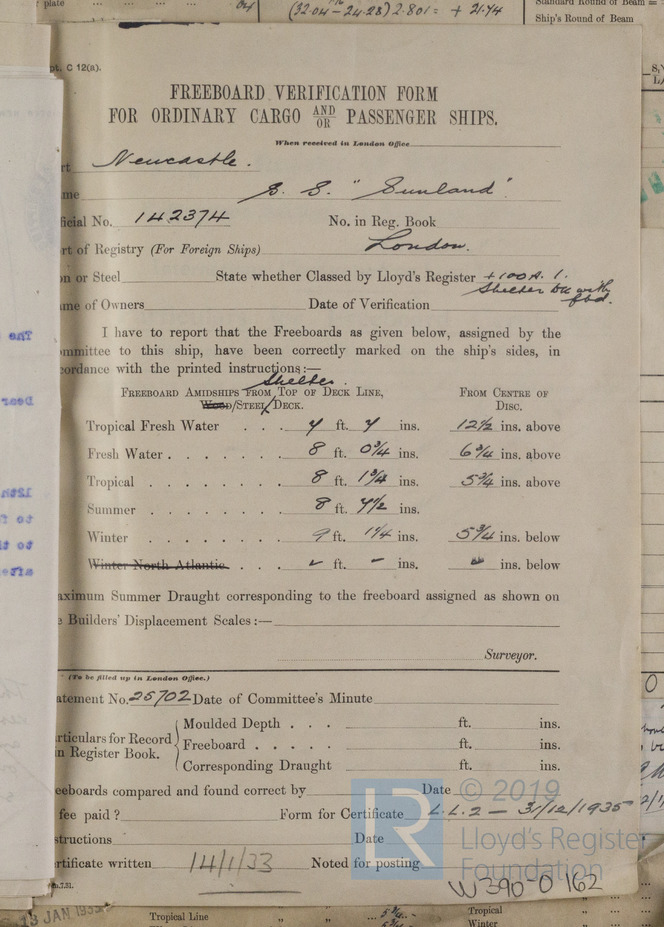 plate ... ... ...
(32.04 - 24.28) 2.801 = + 21.74
Standard Round of Beam =
Ship's Round of Beam
pt. C 12(a).
FREEBOARD VERIFICATION FORM
FOR ORDINARY CARGO AND/OR PASSENGER SHIPS.
When received in London Office
rt Newcastle.
me S. S. "Sunland"
ficial No. 142374 No. in Reg. Book
rt of Registry (For Foreign Ships) London.
on or Steel State whether Classed by Lloyd's Register +100A.1.
Shelter Dk with
fbd.
me of Owners Date of Verification
I have to report that the Freeboards as given below, assigned by the
ommittee to this ship, have been correctly marked on the ship's sides, in
cordance with the printed instructions:—
Shelter
FREEBOARD AMIDSHIPS FROM TOP OF DECK LINE, FROM CENTRE OF
WOOD/STEEL/DECK. DISC.
Tropical Fresh Water . . . 7 ft. 7 ins. 12½ ins. above
Fresh Water . . . . . . . 8 ft. 0¾ ins. 6¾ ins. above
Tropical . . . . . . . . 8 ft. 1¾ ins. 5¾ ins. above
Summer . . . . . . . . 8 ft. 7½ ins.
Winter . . . . . . . . 9 ft. 1¼ ins. 5¾ ins. below
Winter North Atlantic . . . ft. - ins. ins. below
aximum Summer Draught corresponding to the freeboard assigned as shown on
e Builders' Displacement Scales :—
Surveyor.
(To be filled up in London Office.)
atement No. 25702 Date of Committee's Minute
rticulars for Record
in Register Book.
Moulded Depth . . . ft. ins.
Freeboard . . . . . ft. ins.
Corresponding Draught ft. ins.
eeboards compared and found correct by Date
fee paid ? Form for Certificate L.L.2 — 31/12/1935
structions Date
rtificate written 14/1/33 Noted for posting
m.7.31.
W390-0162
© 2019
Lloyd's Register
Foundation
LR
13 JAN 1933
Tropical Line " " ... 5¾
Tropical
Winter
The
Dear
12th
to t
to th
afte